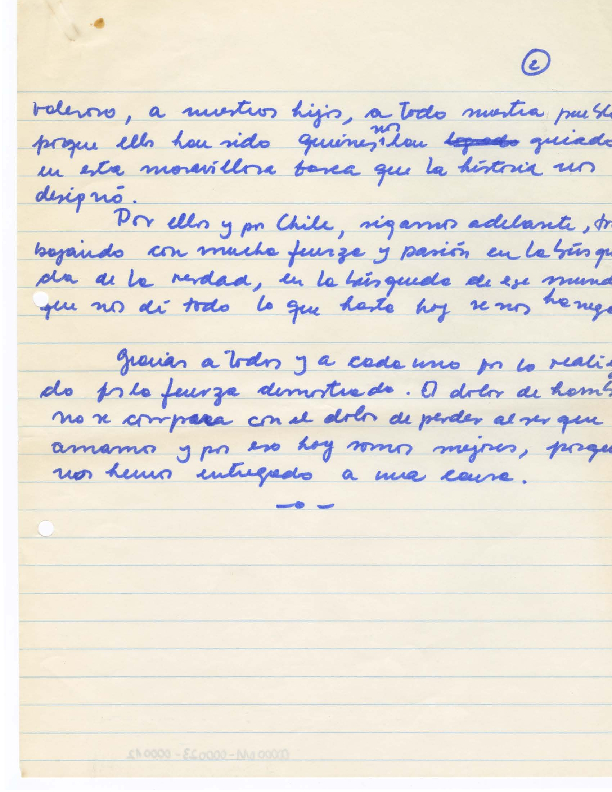 2
valeroso, a nuestros hijos, a todo nuestra puebl
porque ells han sido quienes nos han guiado
en esta maravillosa tarea que la historia nos
designó.
Por ellos y por Chile, sigamos adelante, tra
bajando con mucha fuerza y pasión en la búsque
da de la verdad, en la búsqueda de ese mundo
que nos dé todo lo que hasta hoy se nos ha negado
Gracias a todos y a cada uno por lo realiza
do por la fuerza demostrada. El dolor de hambre
no se compara con el dolor de perder al ser que
amamos y por eso hoy somos mejores, porque
nos hemos entregado a una causa.